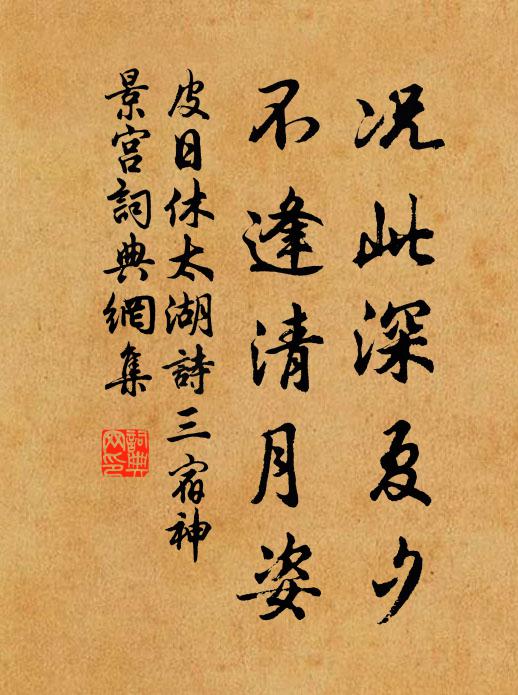 况此深夏夕
不逢清月姿
皮日休太湖詩三宿神
景宮詞典網集
詞典
网印